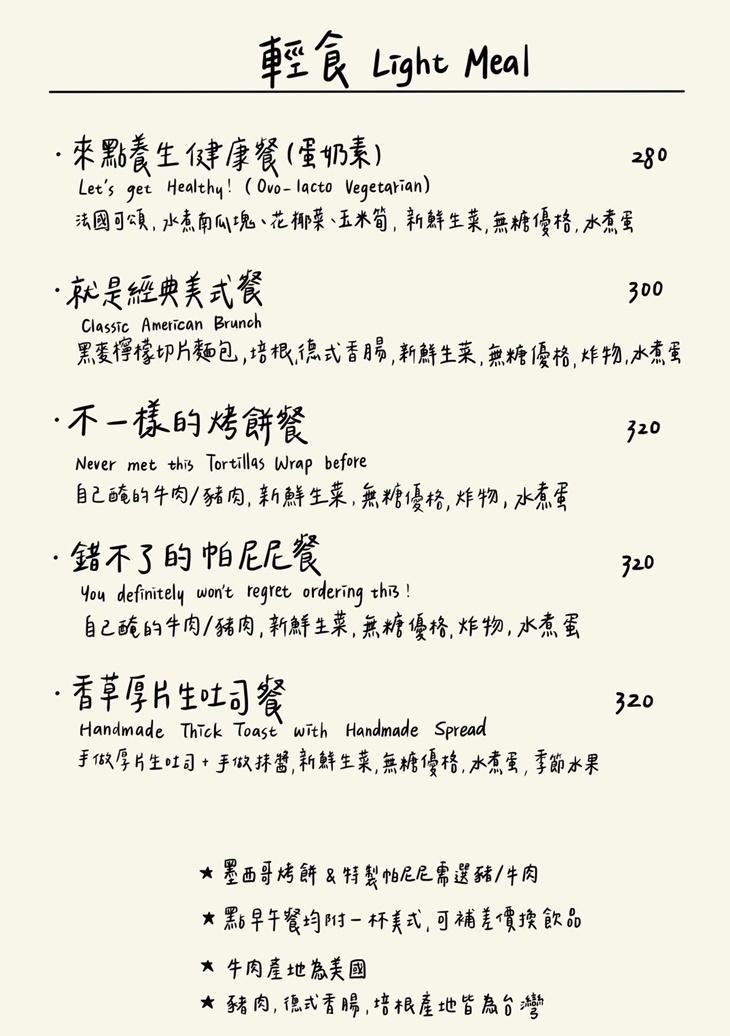 輕食 Light Meal
· 來點養生健康餐(蛋奶素) 280
Let's get Healthy! (Ovo-lacto Vegetarian)
法國可頌, 水煮南瓜塊、花椰菜、玉米筍, 新鮮生菜, 無糖優格, 水煮蛋
· 就是經典美式餐 300
Classic American Brunch
黑麥檸檬切片麵包, 培根, 德式香腸, 新鮮生菜, 無糖優格, 炸物, 水煮蛋
· 不一樣的烤餅餐 320
Never met this Tortillas Wrap before
自己醃的牛肉/豬肉, 新鮮生菜, 無糖優格, 炸物, 水煮蛋
· 錯不了的帕尼尼餐 320
You definitely won't regret ordering this!
自己醃的牛肉/豬肉, 新鮮生菜, 無糖優格, 炸物, 水煮蛋
· 香草厚片生吐司餐 320
Handmade Thick Toast with Handmade Spread
手做厚片生吐司 + 手做抹醬, 新鮮生菜, 無糖優格, 水煮蛋, 季節水果
★ 墨西哥烤餅 & 特製帕尼尼需選豬/牛肉
★ 點早午餐均附一杯美式, 可補差價換飲品
★ 牛肉產地為美國
★ 豬肉, 德式香腸, 培根產地皆為台灣